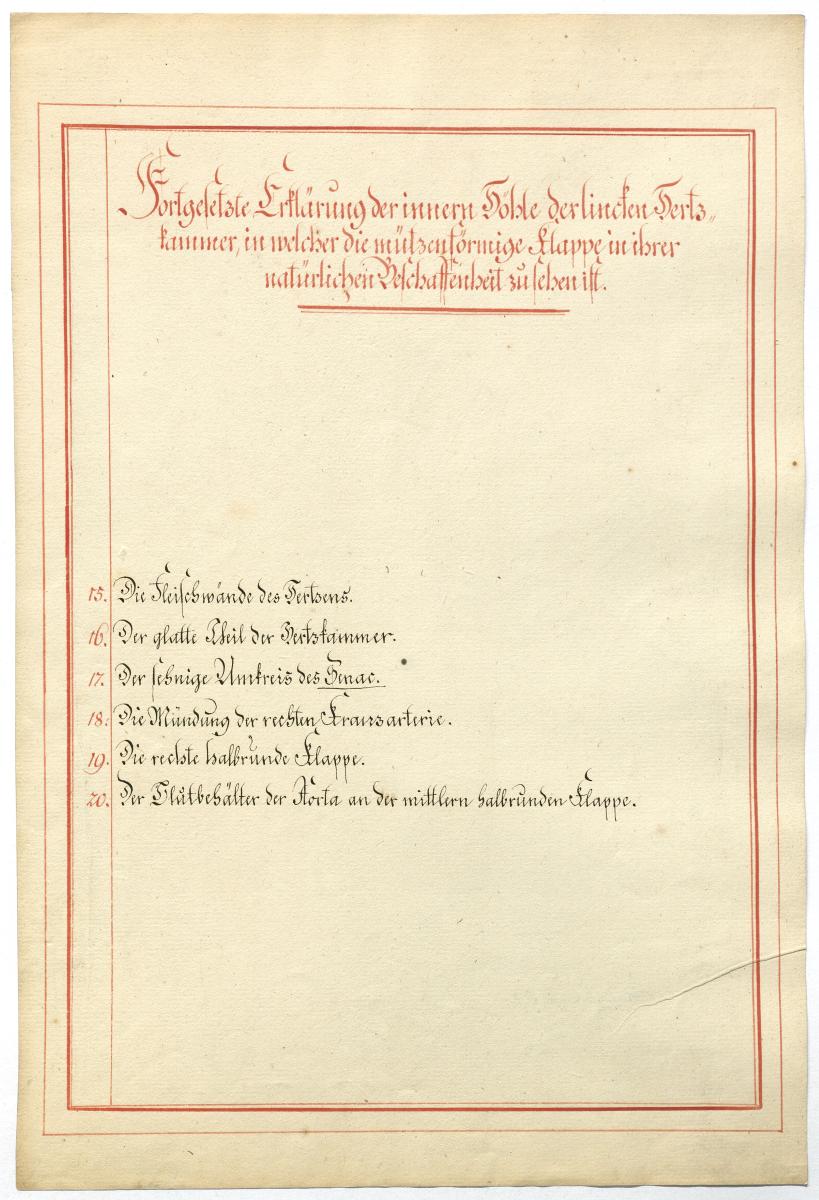 Fortgesetzte Erklärung der innern Höhle der lincken Hertz-
kammer, in welcher die mützenförmige Klappe in ihrer
natürlichen Beschaffenheit zu sehen ist.
15. Die Fleischwände des Hertzens.
16. Der glatte Theil der Hertzkammer.
17. Der sehnige Umkreis des Senac.
18. Die Mündung der rechten Kranzarterie.
19. Die rechte halbrunde Klappe.
20. Der Blutbehälter der Aorta an der mittlern halbrunden Klappe.